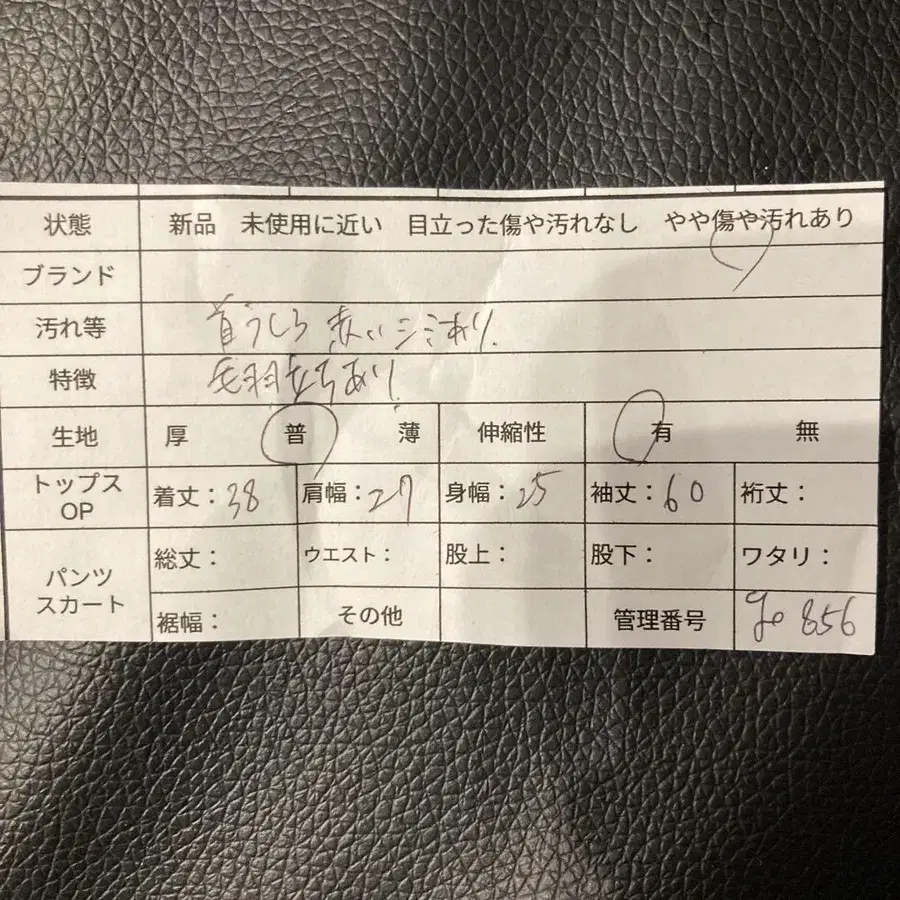 状態 新品 未使用に近い 目立った傷や汚れなし やや傷や汚れあり
ブランド
汚れ等 首うしろ 赤いシミあり
特徴 毛羽立ちあり
生地 厚 普 薄 伸縮性 有 無
トップス OP 着丈:38 肩幅:27 身幅:25 袖丈:60 裄丈:
パンツ スカート 総丈: ウエスト: 股上: 股下: ワタリ:
裾幅: その他 管理番号 856